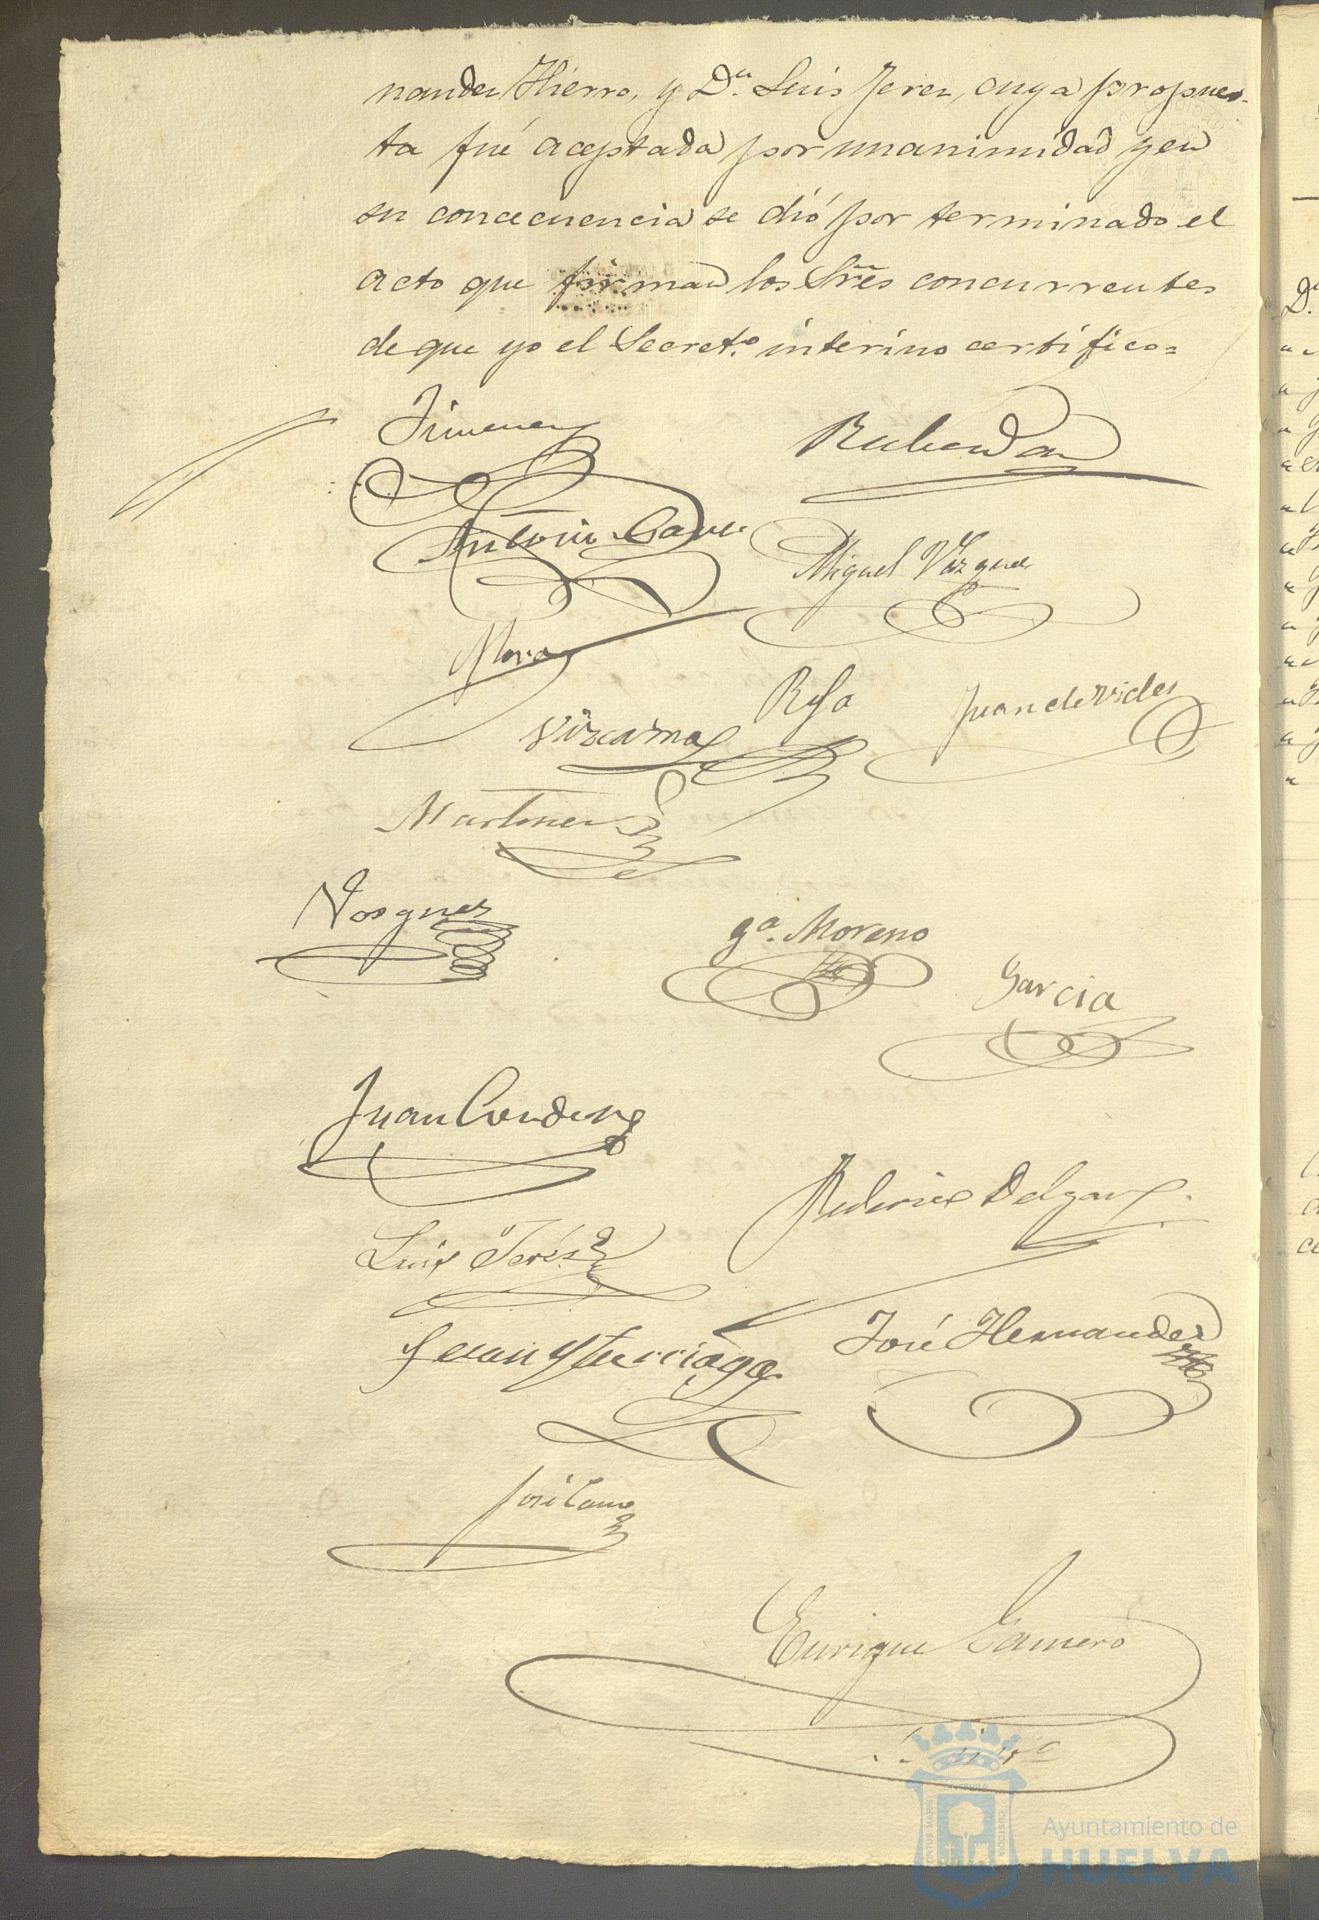 nandez Hierro, y Dn. Luis Jerez, cuya propues-
ta fué aceptada por unanimidad y en
su concecuencia se dió por terminado el
acto que firman los Sres concurrentes
de que yo el Secreto. interino certifico=
Jimenez
Antonio
Miguel Vazquez
Mora
Rofa
Juan de Vides
Vizcaino
Martinez
Vazquez
ga. Moreno
Garcia
Juan
Federico Delgado
Luis Jeréz
José Hernandez
José Cano
Enrique Gamero
Ayuntamiento de
HUELVA